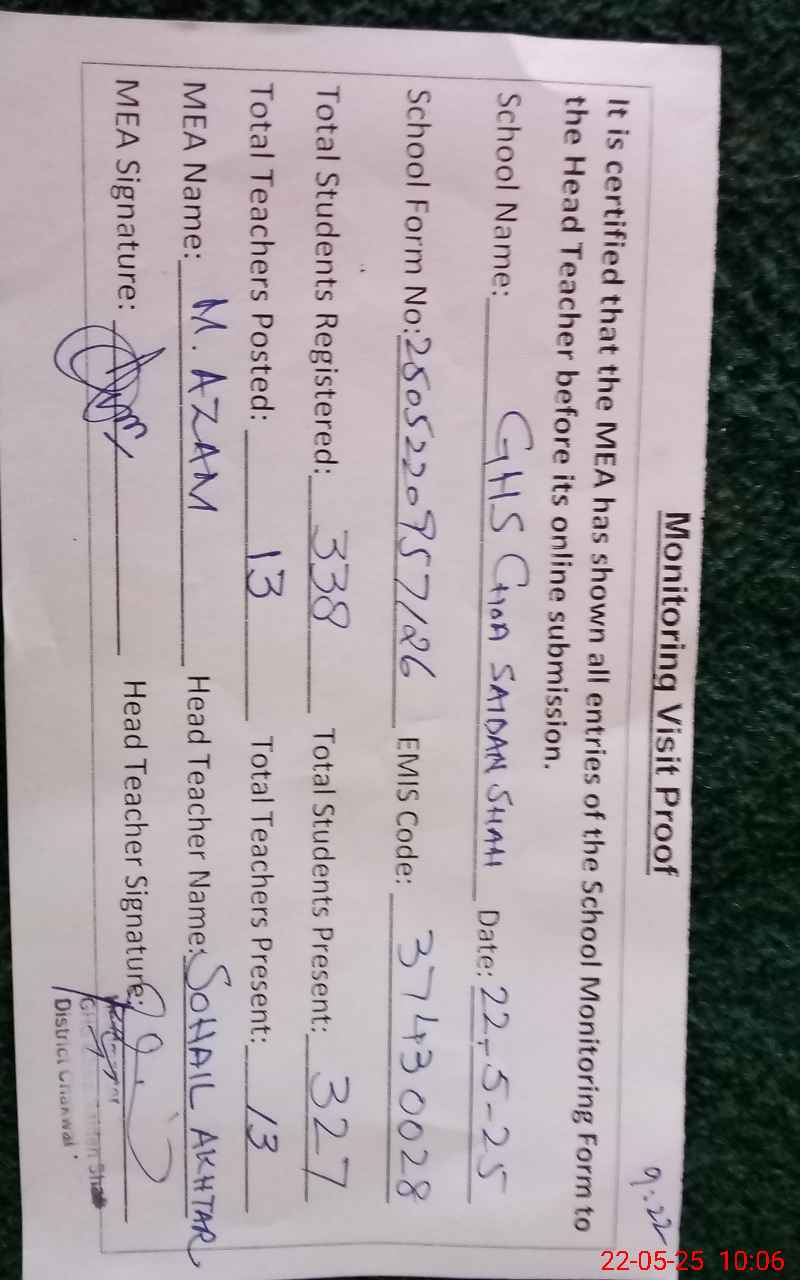 9:22
Monitoring Visit Proof
It is certified that the MEA has shown all entries of the School Monitoring Form to
the Head Teacher before its online submission.
School Name: GHS CHOA SAIDAN SHAH Date: 22-5-25
School Form No: 2505220957126 EMIS Code: 37430028
Total Students Registered: 338 Total Students Present: 327
Total Teachers Posted: 13 Total Teachers Present: 13
MEA Name: M. AZAM Head Teacher Name: SOHAIL AKHTAR
MEA Signature: Head Teacher Signature:
District Chakwal
22-05-25 10:06